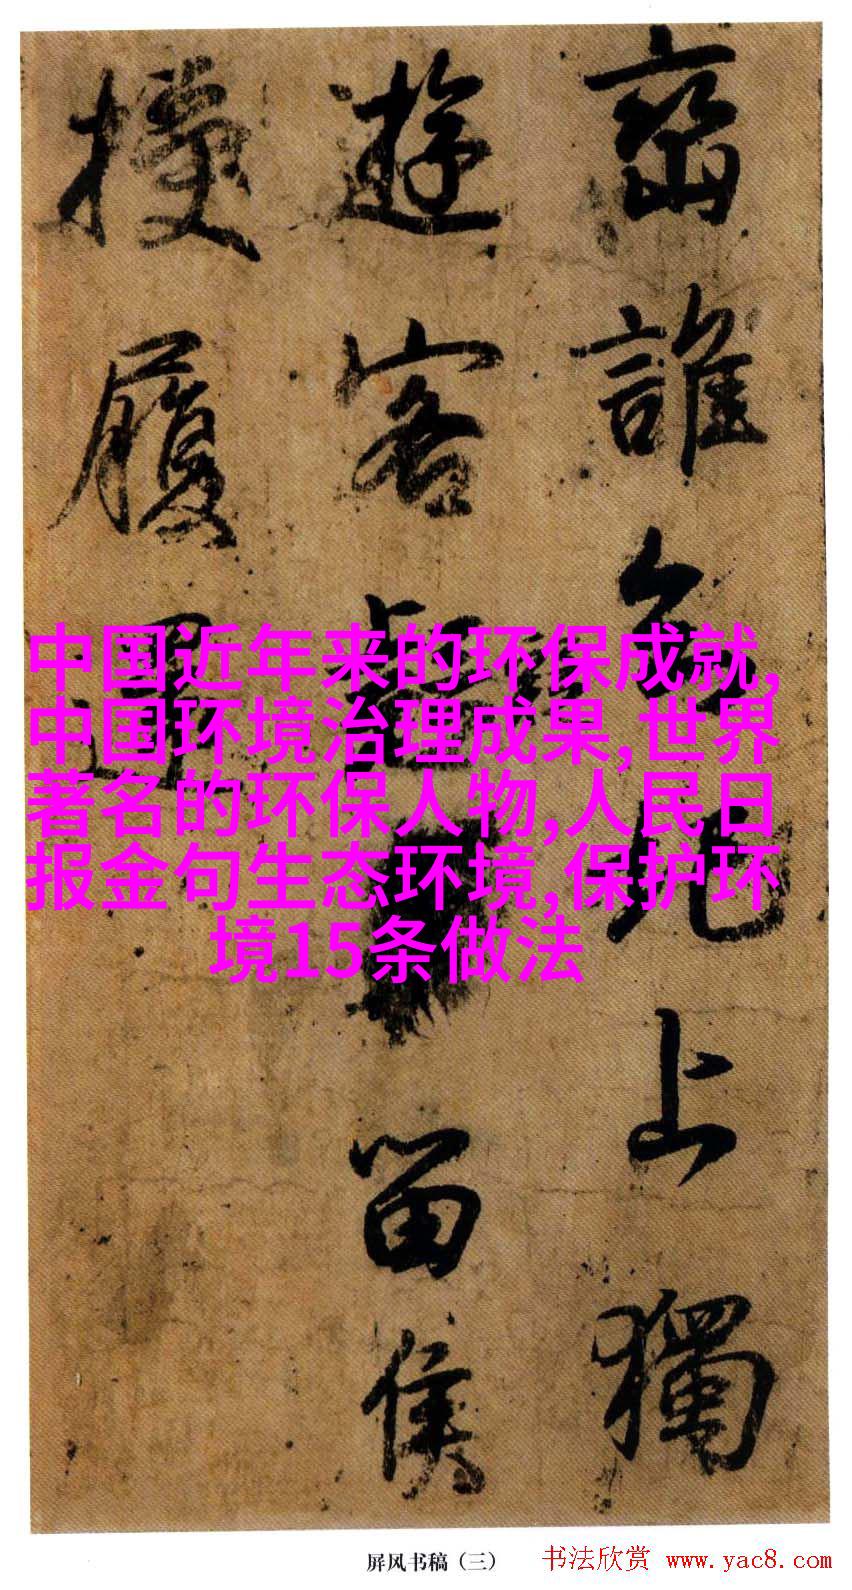 誰此上獨
遊客留侯
履
中国近年来的环保成就,
中国环境治理成果,世界
著名的环保人物,人民日
报金句生态环境,保护环
境15条做法
屏风书稿（三） 书法欣赏 www.yac8.com